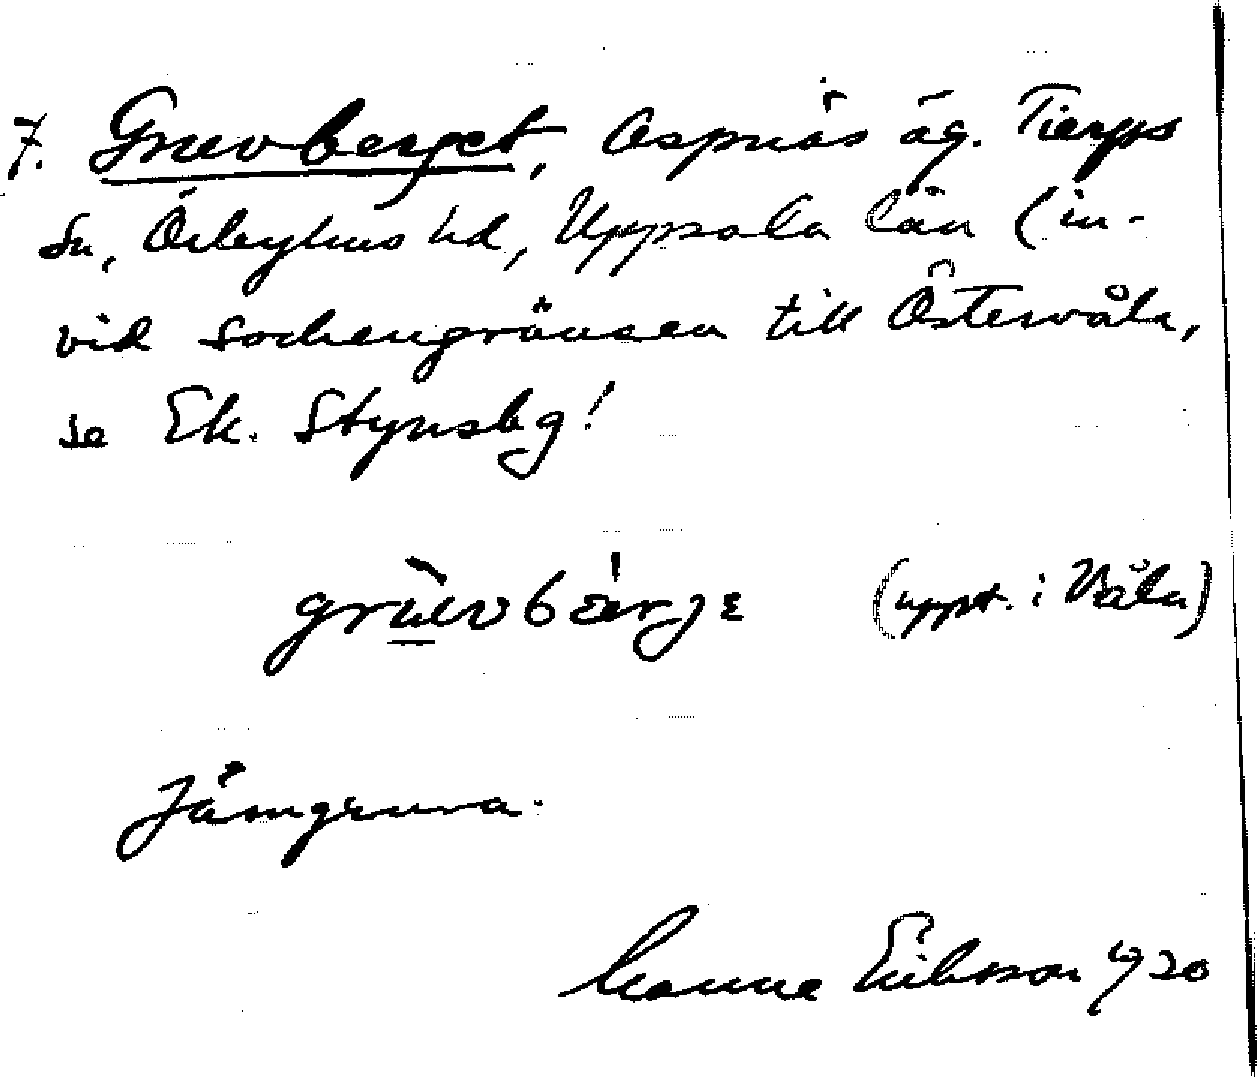 7. Gruvberget, Aspnäs äg. Tierps
sn, Örbyhus hd, Uppsala län (in-
vid sockengränsen till Östervåla,
se Ek. Stynsbg!
(uppt. i Våla)
Järngruva.
Manne Eriksson 1920